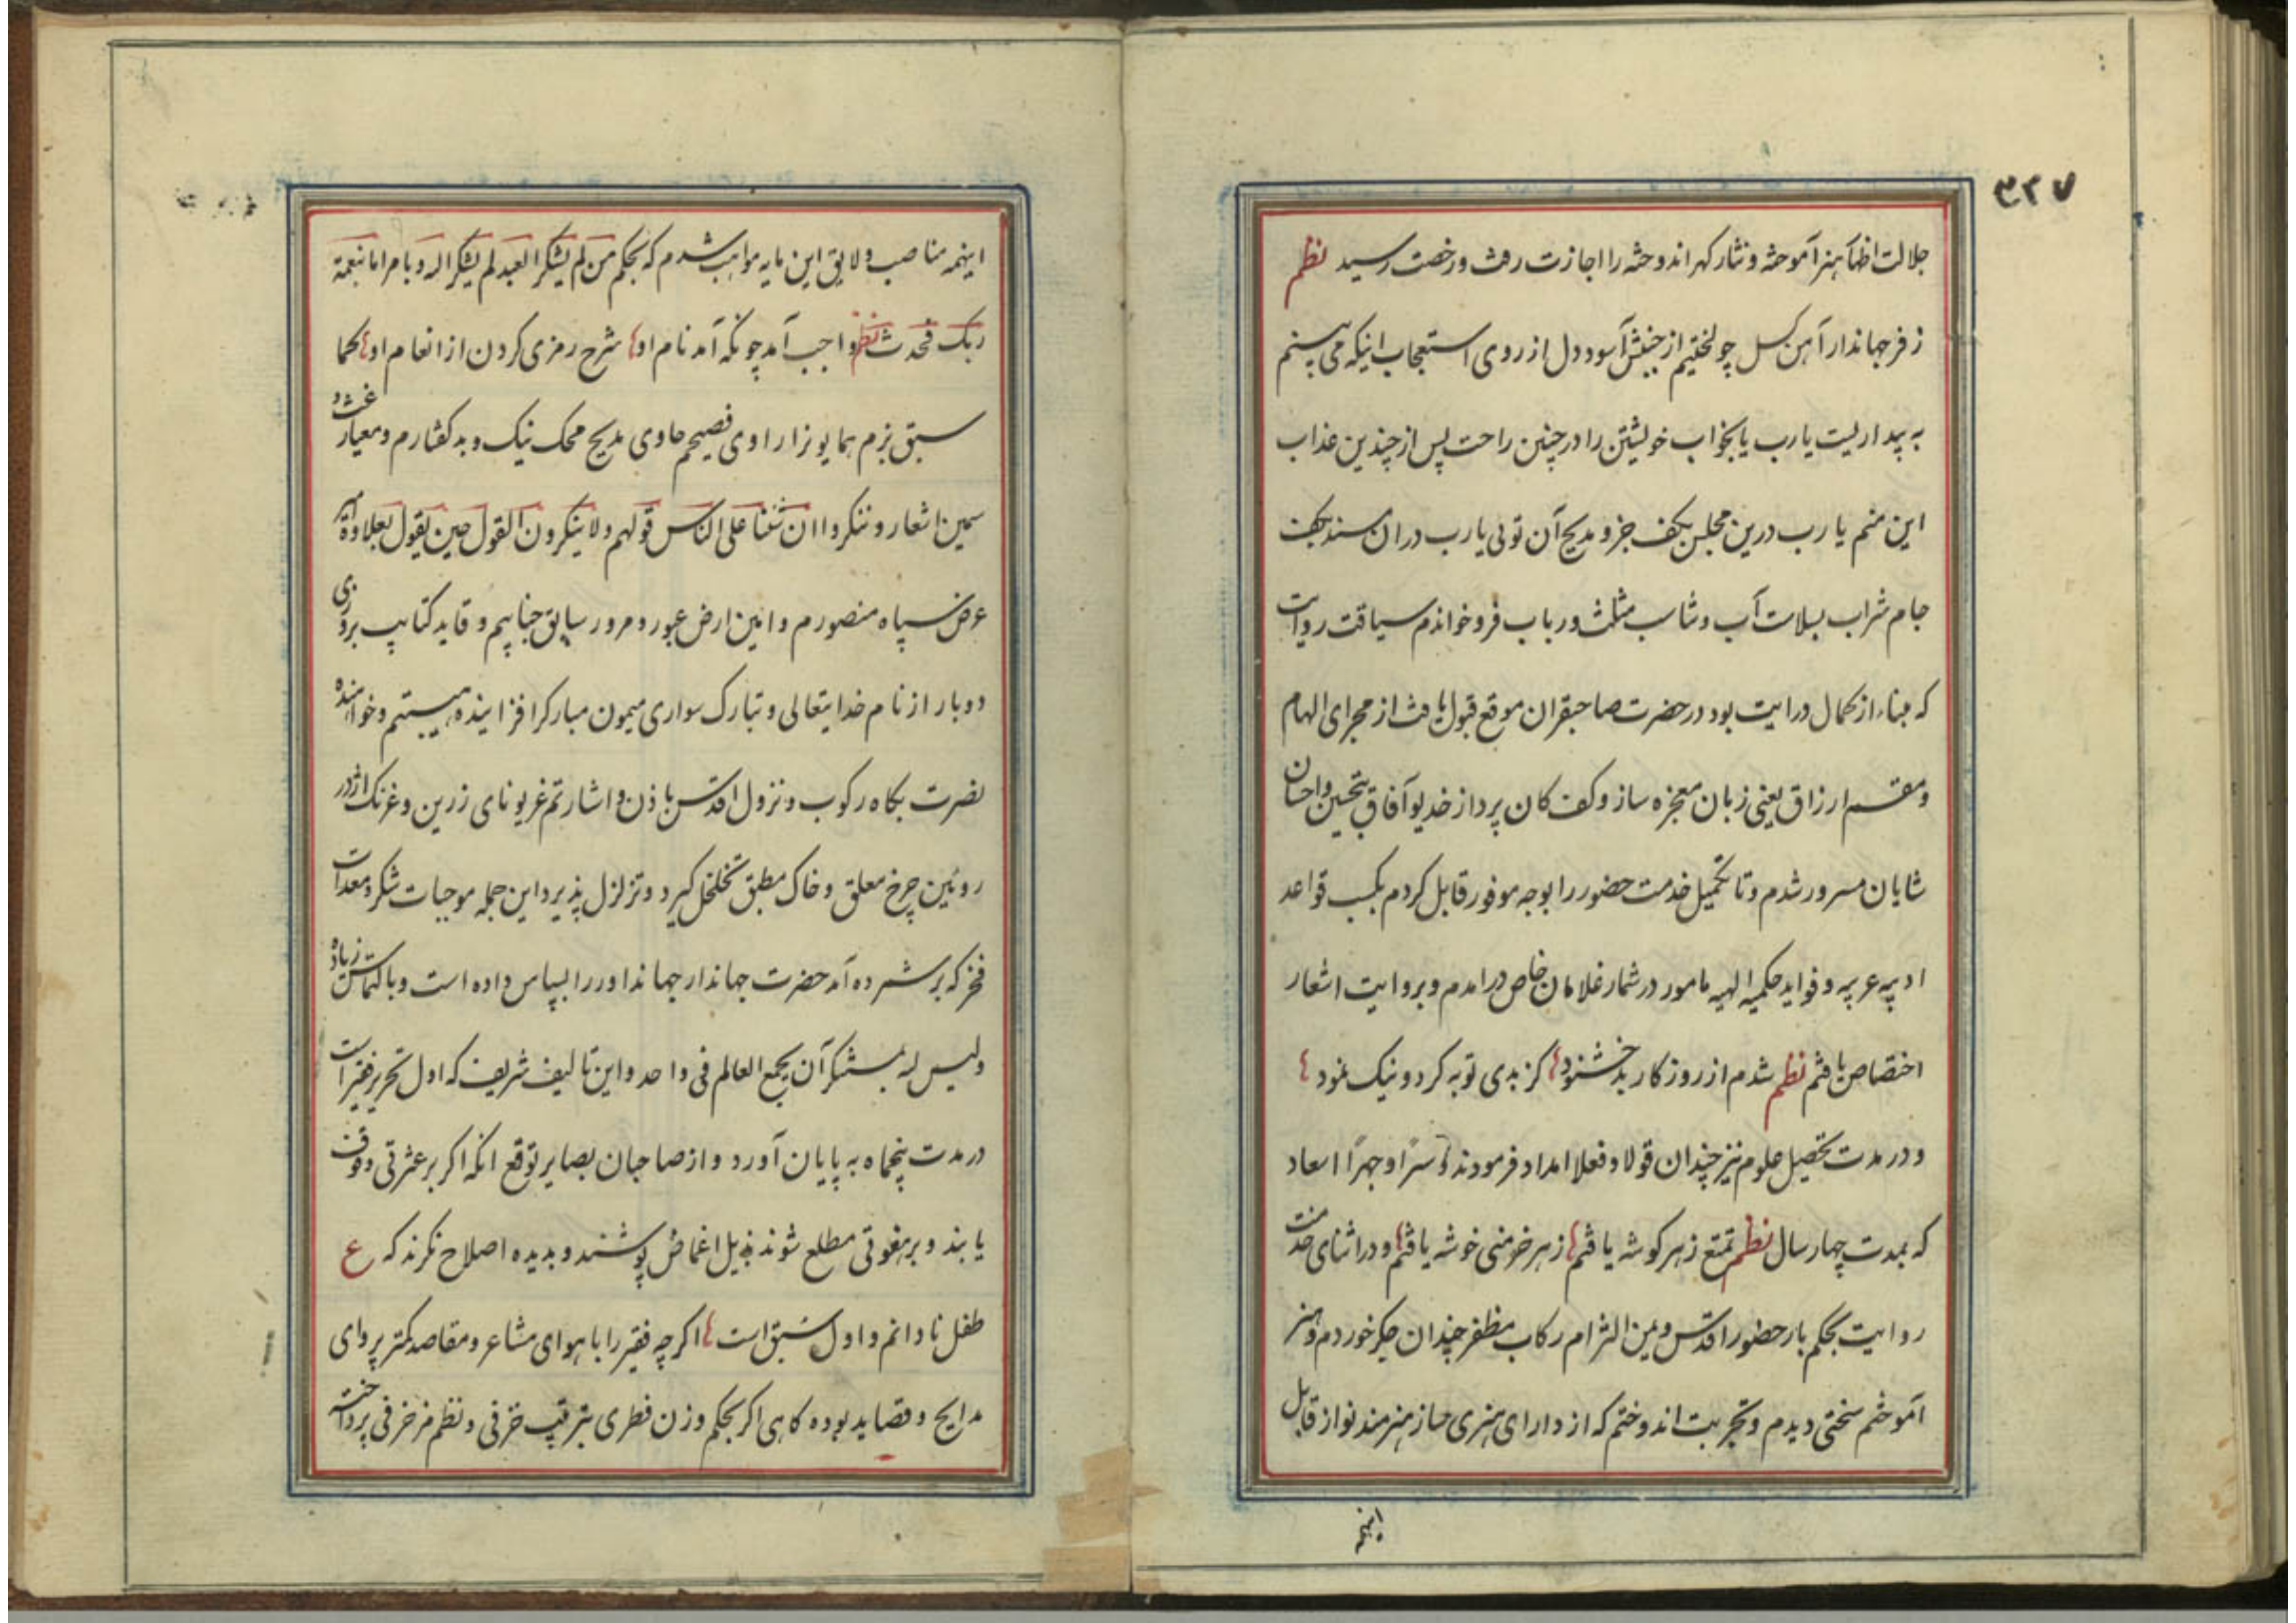 ۳۲۷
جلالت اظهار هنر آموخته و نثار کهر اندوخته را اجازت رفت و رخصت رسید نظم
ز فر جهاندار آهن کسل چو لختیم از جنبش آسود دل از روی استعجاب اینکه می بینم
به بیداریست یارب یا بخواب خویشتن را در چنین راحت پس از چندین عذاب
این منم یا رب درین مجلس بکف جزو مدیح آن توئی یا رب در ان مسند بکف
جام شراب بسلاست آب و شاب مثلث و رباب فرو خواندم سیاقت روایت
که مبناء از کمال درایت بود در حضرت صاحبقران موقع قبول یافت از مجرای الهام
و مقسم ارزاق یعنی زبان معجزه ساز و کف کان پرداز خدیو آفاق بتحسین و احسان
شایان مسرور شدم و تا تکمیل خدمت حضور را بوجه موفور قابل کردم بکسب قواعد
ادبیه عربیه و فواید حکمیه الهیه مامور در شمار غلامان خاص درامدم و بروایت اشعار
اختصاص یافتم نظم شدم از روزکار بد خشنود کز بدی توبه کرد و نیک نمود
و در مدت تحصیل علوم نیز چندان قولا و فعلا امداد فرمودند و سرًا و جهرًا اسعاد
که بمدت چهار سال نظم تمتع ز هر کوشه یافتم ز هر خرمنی خوشه یافتم و در اثنای خدمت
روایت بحکم بار حضور اقدس و یمن التزام رکاب مظفر چندان جکر خوردم و هنر
آموختم سختی دیدم و تجربت اندوختم که از دارای هنری ساز هنرمند نواز قابل
اینهمه
اینهمه مناصب و لایق این مایه مواهب شدم که بحکم من لم یشکر العبد لم یشکر الله و بامر اما بنعمة
ربک فحدث نظم واجب آمد چونکه آمد نام او شرح رمزی کردن از انعام او کما
سبق بزم همایونرا راوی فصیحم حاوی مدیح محک نیک و بد کفتارم و معیار غث و
سمین اشعار و ننکروا ان شئنا علی الناس قولهم ولا ینکرون القول حین نقول بعلاوه
عرض سپاه منصورم و امین ارض عبور و مرور سابق جنایبم و قاید کتایب بروزی
دو بار از نام خدایتعالی و تبارک سواری میمون مبارکرا فزاینده هیبتم و خواهنده
نصرت بکاه رکوب و نزول اقدس باذن و اشارتم غریو نای زرین و غرنک اژدر
روئین چرخ معلق و خاک مطبق تخلخل کیرد و تزلزل پذیرد این جمله موجبات شکر و معدات
فخر که بر شمرده آمد حضرت جهاندار جهانداور را بسپاس داده است و با کتماس زیاده
ولیس لله بمستنکر آن یجمع العالم فی واحد و این تالیف شریف که اول تحریر فقیر است
در مدت پنجماه به پایان آورد و از صاحبان بصایر توقع انکه اکر بر عثرتی وقوف
یابند و بر هفوتی مطلع شوند بذیل اغماض پوشند و بدیده اصلاح نکرند که ع
طفل نادانم و اول سبق است اکرچه فقیر را با هوای مشاعر و مقاصد کمتر پروای
مدایح و قصاید بوده کاهی اکر بحکم وزن فطری بترتیب خزفی و نظم مزخرفی پرداخته